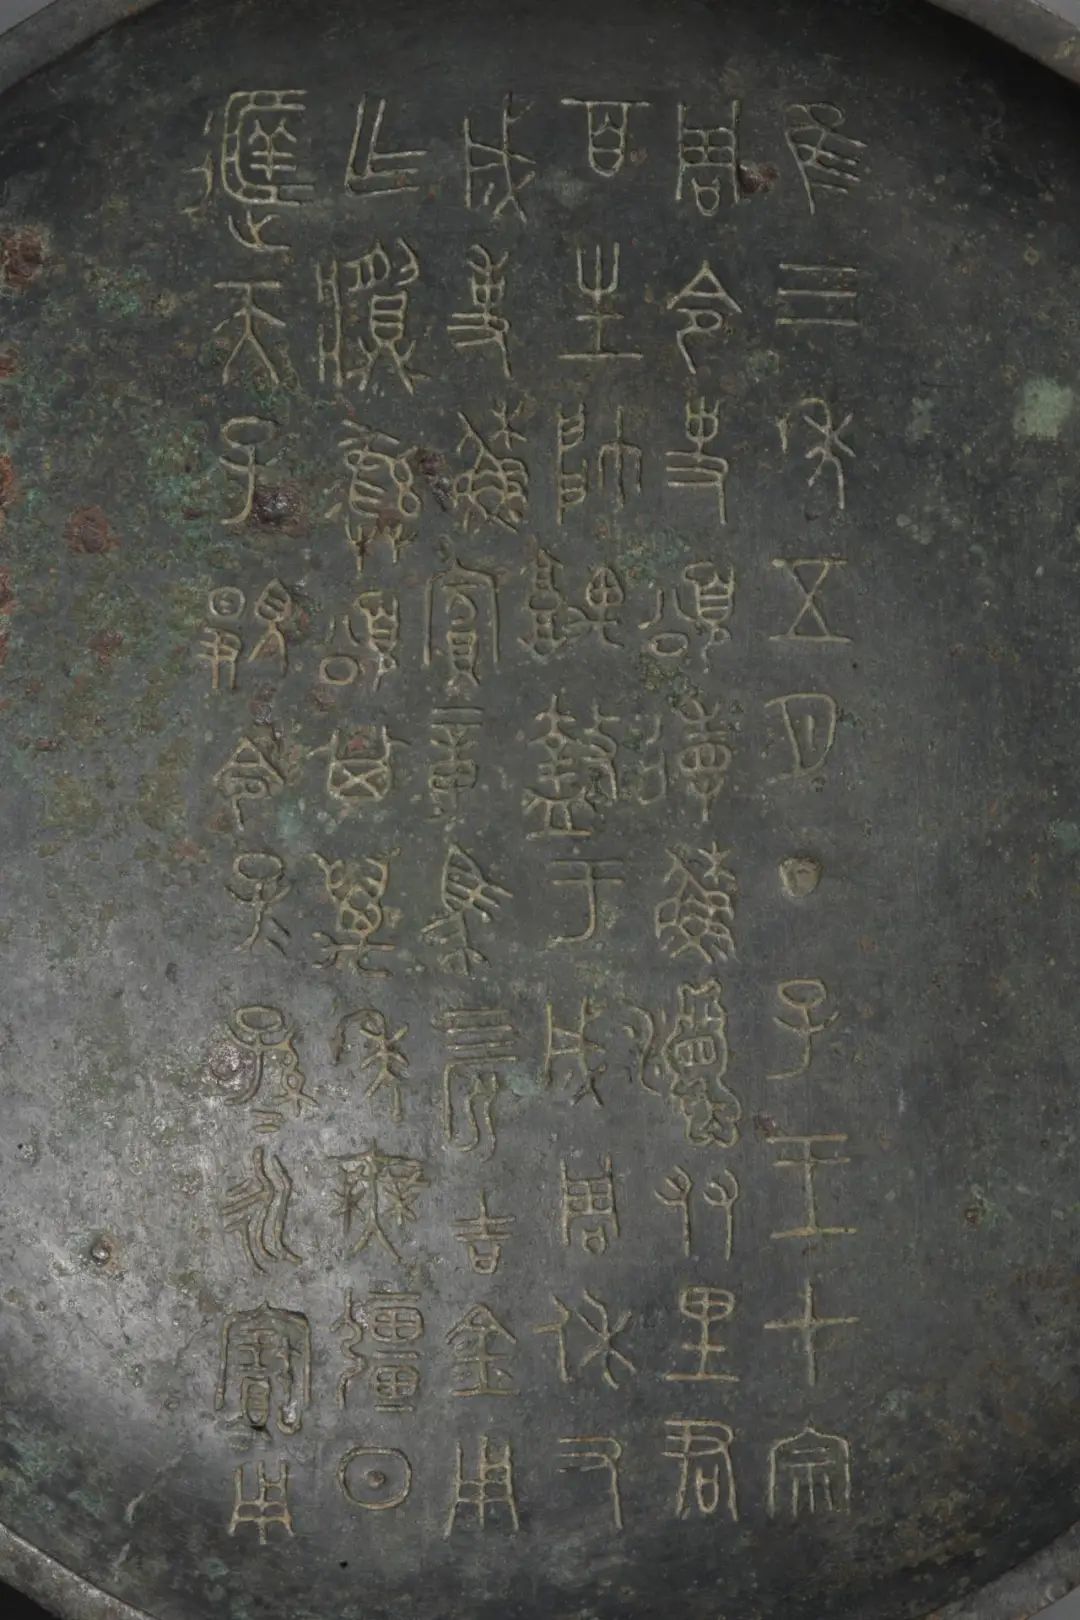 隹三年五月丁子王才宗
周令史頌𢓊穌姻友里君
百生帥𩒨盩于成周休又
成事穌賓章馬亖匹吉金用
乍𩰬彝頌其萬年無彊日
𨓚天子覭令子孫永寶用